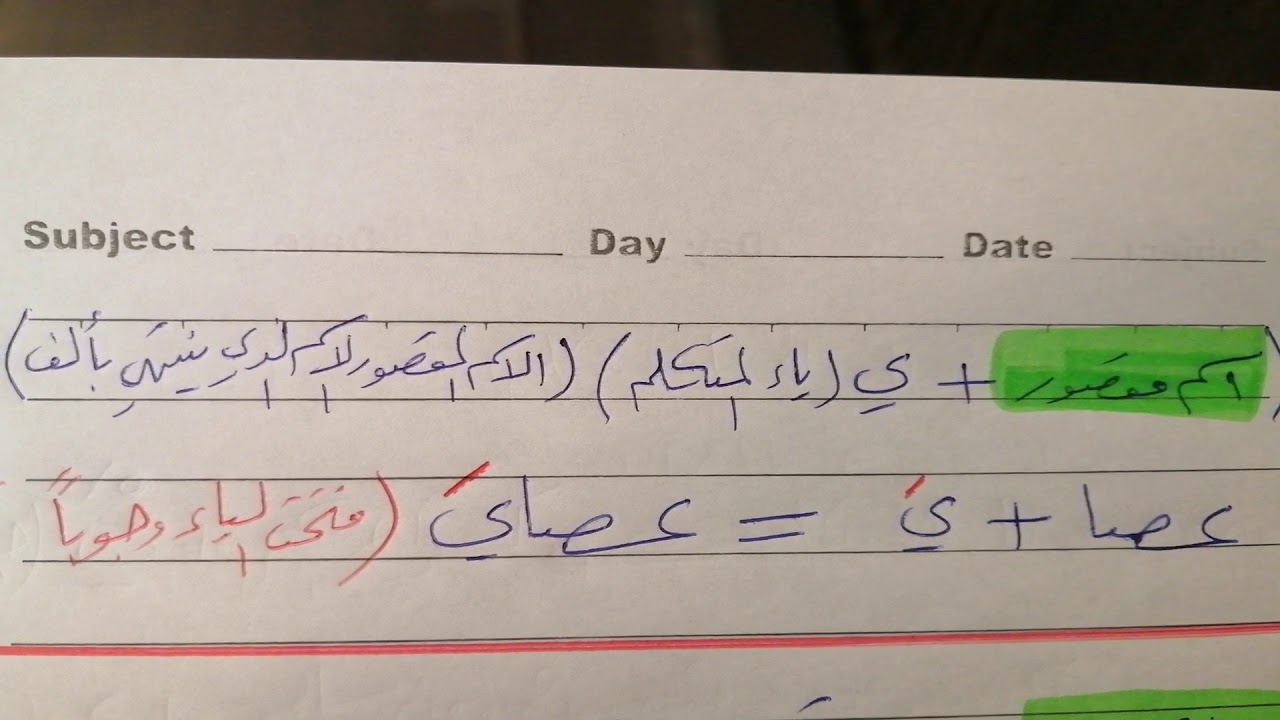 Subject Day Date
(اسم مقصور + ي (ياء المتكلم) (الاسم المقصور الاسم الذي ينتهي بألف)
عصا + يَ = عصايَ (فتحت الياء وجوباً